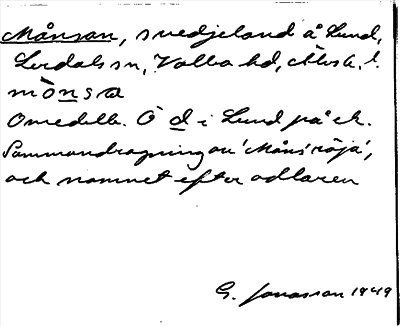 Månsan, svedjeland å Lund,
Lerdals sn, Valbo hd, Älvsb. l.
mònsa
Omedelb. Ö d i Lund på ck.
Sammandragning av 'Måns' röja',
och namnet efter odlaren
G. Jonasson 1949